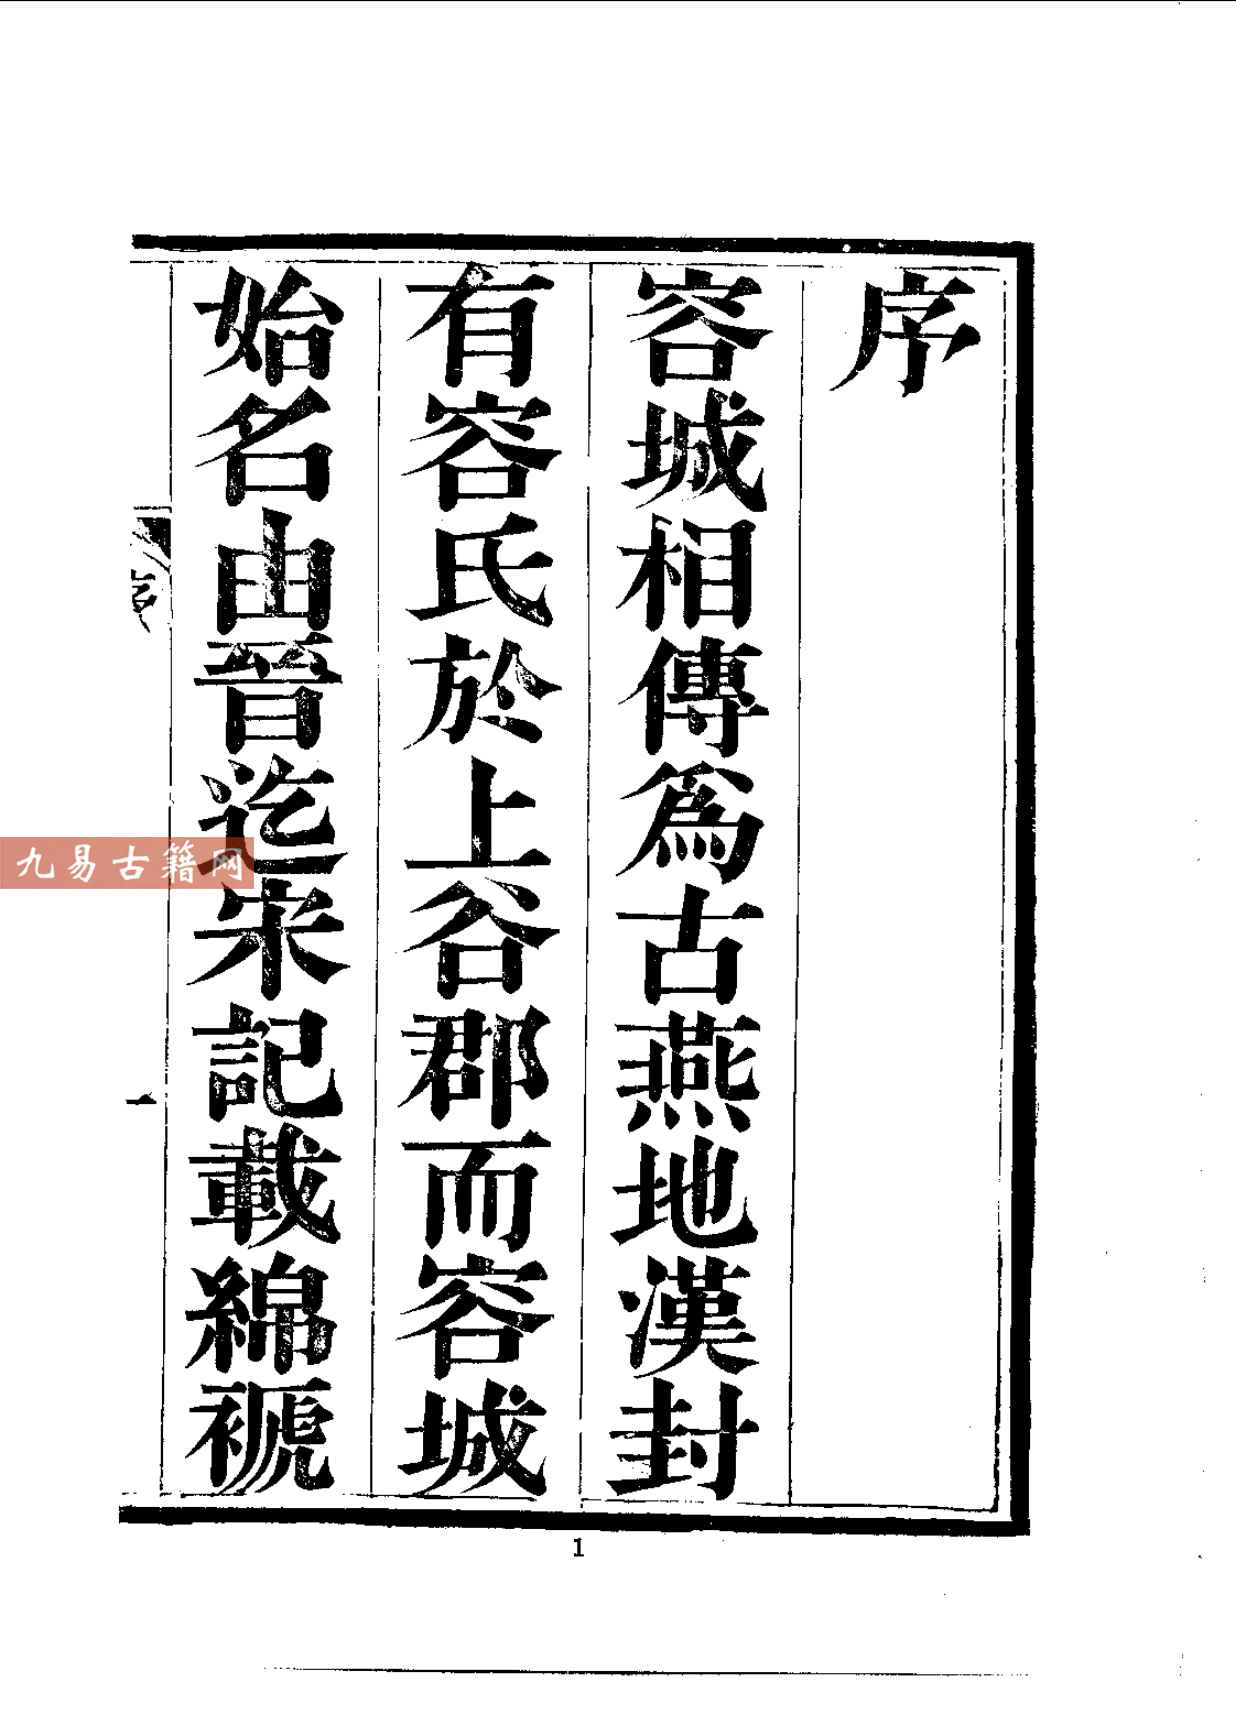 序
容城相傳爲古燕地漢封
有容氏於上谷郡而容城
始名由晉迄宋記載綿褫
序
一
九易古籍网
1